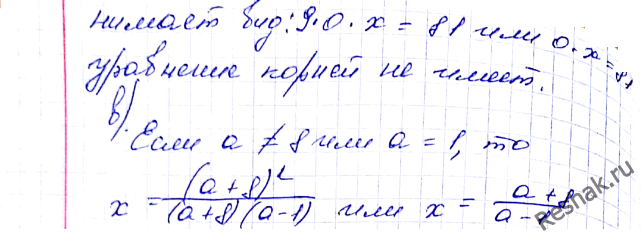 нимает вид: 9·0·x = 81 или 0·x = 81
уравнение корней не имеет.
в)
Если a ≠ 8 или a = 1, то
x = (a+8)² / (a+8)(a-1) или x = a+8 / a-1
Reshak.ru